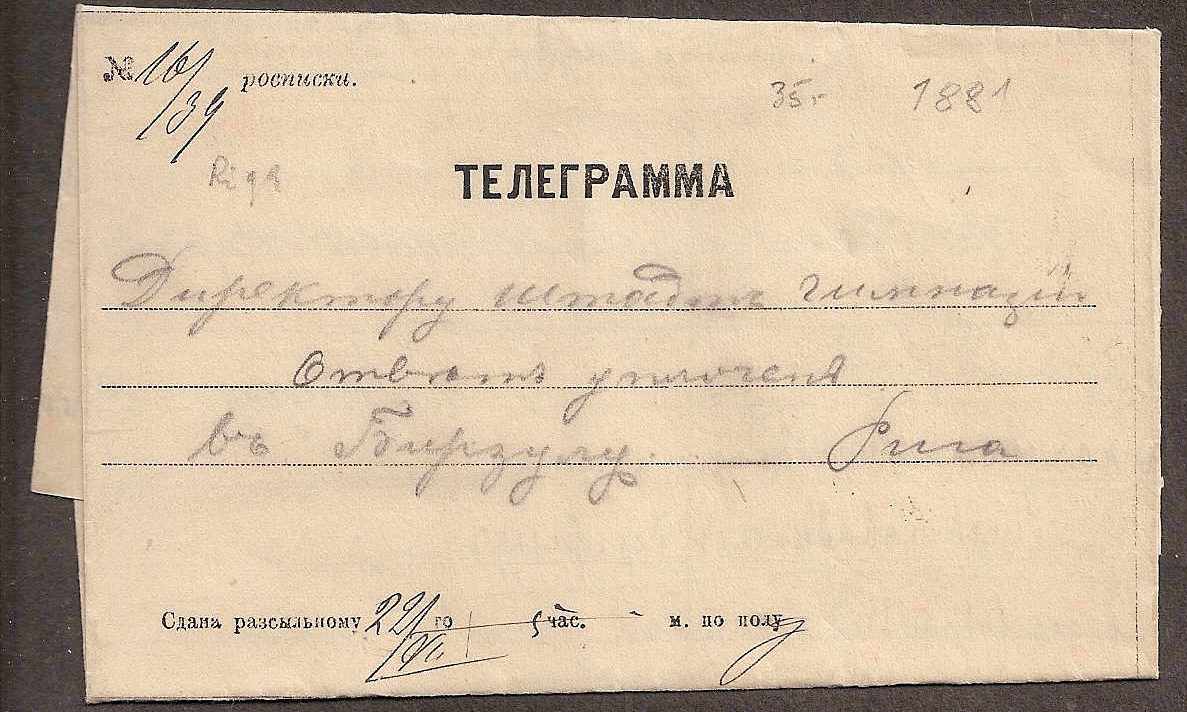 № 16/39 росписки. 35- 1881
Riga
ТЕЛЕГРАММА
Директору штадтъ гимназіи
Отвѣтъ уплоченъ
въ Бирзулу. Рига
Сдана разсыльному 22/го час. м. по полу